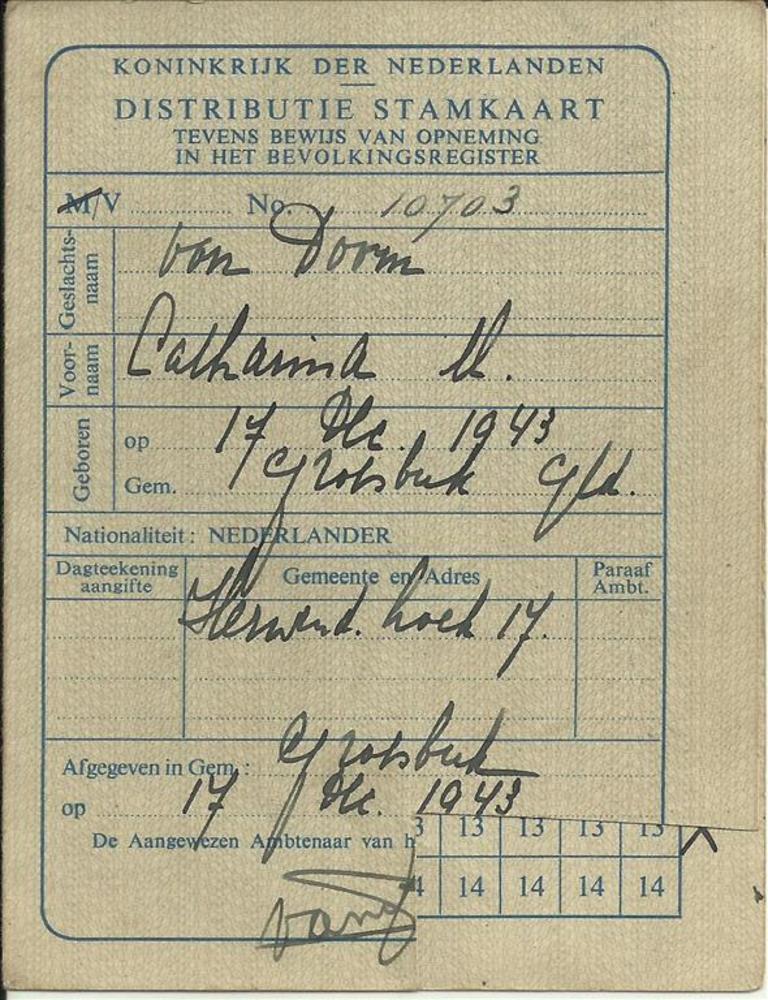 KONINKRIJK DER NEDERLANDEN
DISTRIBUTIE STAMKAART
TEVENS BEWIJS VAN OPNEMING
IN HET BEVOLKINGSREGISTER
M/V No. 10703
Geslachts-
naam
van Doorn
Voor-
naam
Catharina M.
Geboren
op 17 Dec. 1943
Gem. Groesbeek Gld.
Nationaliteit: NEDERLANDER
Dagteekening
aangifte
Gemeente en Adres
Paraaf
Ambt.
hoek 17.
Afgegeven in Gem.: Groesbeek
op 17 Dec. 1943
De Aangewezen Ambtenaar van h
3 13 13 13 13
4 14 14 14 14